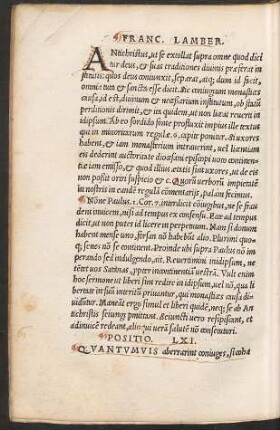 FRANC. LAMBER.
ANtichristus, ut se extollat supra omne quod dici
tur deus, & suas traditiones divinis præferat in
stitutis: quos deus coniunxit, separat, atq; dum id facit,
omne tutum & sanctũ esse dicit. Sic coniugium monastices
causa, id est, divinum & necessarium institutum, ob statũ
perditionis dirimit, & ita quidem, ut non liceat reverti in
idipsum. Ab eo fordido fonte profluxit impius ille textus
qui in minoritarum regulæ. c. capite ponitur. Si uxores
habent, & iam monasterium intraverint, vel licentiam
eis dederit auctoritate diocæsani episcopi voto continen
tiæ iam emisso, & quod illius ætatis sint uxores, ut de eis
non possit oriri suspicio & c. Quorũ verborũ impietatẽ
in nostris in eandẽ regulã cõmentarijs, palam fecimus.
Nõne Paulus. 1. Cor. 7. interdicit cõiugibus, ne se frau
dent invicem, nisi ad tempus ex consensu. Rex ad tempus
dicit, ut non putet id licere in perpetuum. Nam si donum
habent mense uno, forsan nõ habebũt alio. Plurimi quo-
q; senes nõ se continent. Proinde ubi supra Paulus nõ im
perando sed indulgendo, ait. Revertimini in idipsum, ne
tentet vos Satanas, ꝓpter incontinentiã vestrã. Vult enim
hoc sermone ut liberi sint redire in idipsum, vel nõ, qui li
bertas in suũ interitũ privantur, qui monastices causa di
viduntur. Maneãt ergo simul et liberi quidẽ, neq; se ab An
tichristis seiungi pmittant. Seiuncti vero resipiscant, et
adinvicẽ redeant, alioqui vera salute nõ consentiuri.
POSITIO. LXI.
QVANTVMVIS aberrarint coniuges, si absq